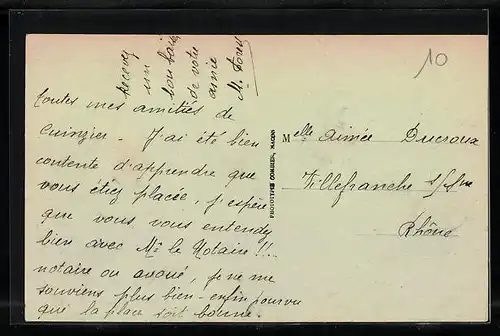 toutes mes amitiés de
Cuinzier. J'ai été bien
contente d'apprendre que
vous étiez placée, j'espère
que vous vous entendez
bien avec Mr le Notaire!!...
notaire ou avoué, je ne me
souviens plus bien - enfin pourvu
que la place soit bonne.
Recevez
un
bon baiser
de votre
amie
M. Forest
PHOTOTYPIE COMBIER, MACON
Melle Aimée
Villefranche s/Saône
Rhône
10